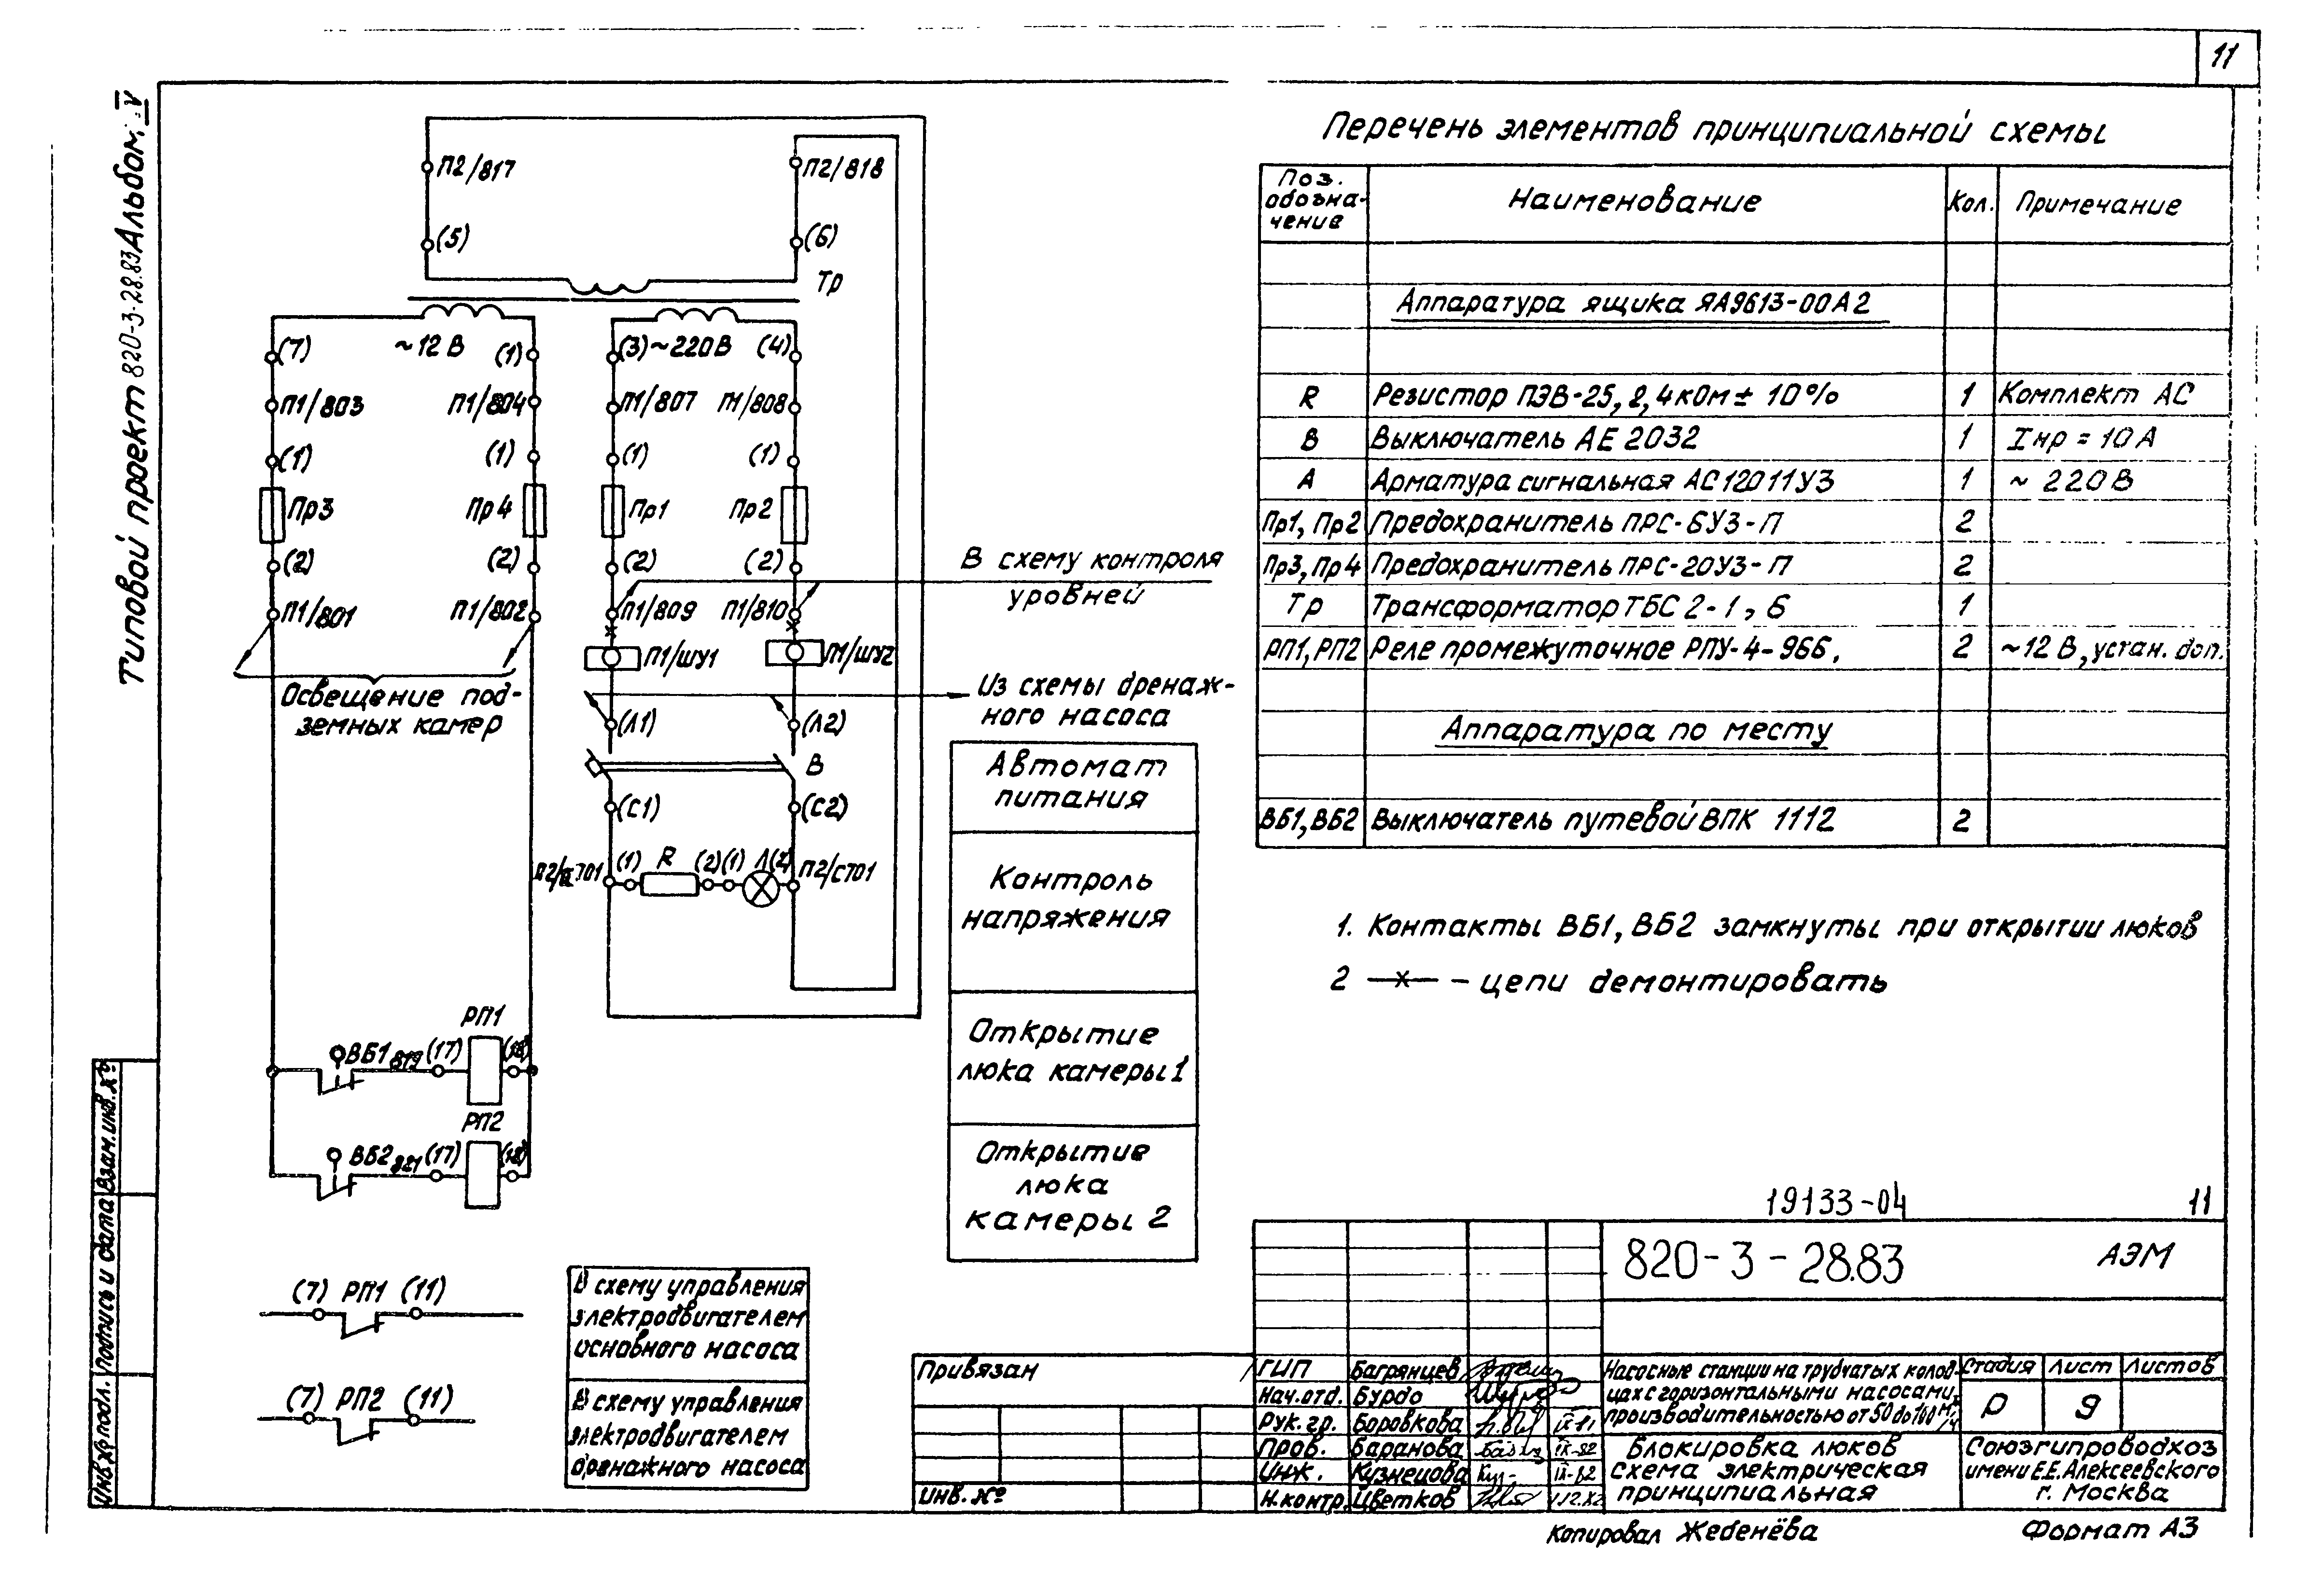 11
Типовой проект 820-3-28.83 Альбом IV
П2/817
П2/818
(5)
(6)
Тр
(7)
~12 В
(1)
(3)
~220 В
(4)
П1/803
П1/804
П1/807
П1/808
(1)
(1)
(1)
(1)
Пр3
Пр4
Пр1
Пр2
(2)
(2)
(2)
(2)
П1/801
П1/802
П1/809
П1/810
В схему контроля
уровней
П1/ШУ1
П1/ШУ2
Освещение под-
земных камер
Из схемы дренаж-
ного насоса
(Л1)
(Л2)
В
(С1)
(С2)
(1)
R
(2)
(1)
Л
(2)
П2/С701
Автомат
питания
Контроль
напряжения
Открытие
люка камеры 1
Открытие
люка
камеры 2
РП1
ВБ1
819
(17)
(18)
РП2
ВБ2
821
(17)
(18)
(7) РП1 (11)
(7) РП2 (11)
В схему управления
электродвигателем
основного насоса
В схему управления
электродвигателем
дренажного насоса
Перечень элементов принципиальной схемы
Поз. обозна-чение
Наименование
Кол.
Примечание
Аппаратура ящика ЯА9613-00А2
R Резистор ПЭВ-25, 2,4 кОм ± 10% 1 Комплект АС
В Выключатель АЕ 2032 1 Iнр = 10 А
А Арматура сигнальная АС12011У3 1 ~ 220 В
Пр1, Пр2 Предохранитель ПРС-6У3-П 2
Пр3, Пр4 Предохранитель ПРС-20У3-П 2
Тр Трансформатор ТБС 2-1,6 1
РП1, РП2 Реле промежуточное РПУ-4-966. 2 ~12 В, устан. доп.
Аппаратура по месту
ВБ1, ВБ2 Выключатель путевой ВПК 1112 2
1. Контакты ВБ1, ВБ2 замкнуты при открытии люков
2 —х— – цепи демонтировать
19133-04
11
820-3-28.83
АЭМ
Привязан
Инв. №
ГИП Багрянцев
Нач.отд. Бурдо
Рук.гр. Боровкова
Пров. Баранова IX-82
Инж. Кузнецова IX-82
Н.контр. Цветков
Насосные станции на трубчатых колод-
цах с горизонтальными насосами,
производительностью от 50 до 160 м³/ч
Стадия Лист Листов
Р 9
Блокировка люков
Схема электрическая
принципиальная
Союзгипроводхоз
имени Е.Е. Алексеевского
г. Москва
Копировал Жебенёва
Формат А3
Инв.№ подл.
Подпись и дата
Взам.инв.№